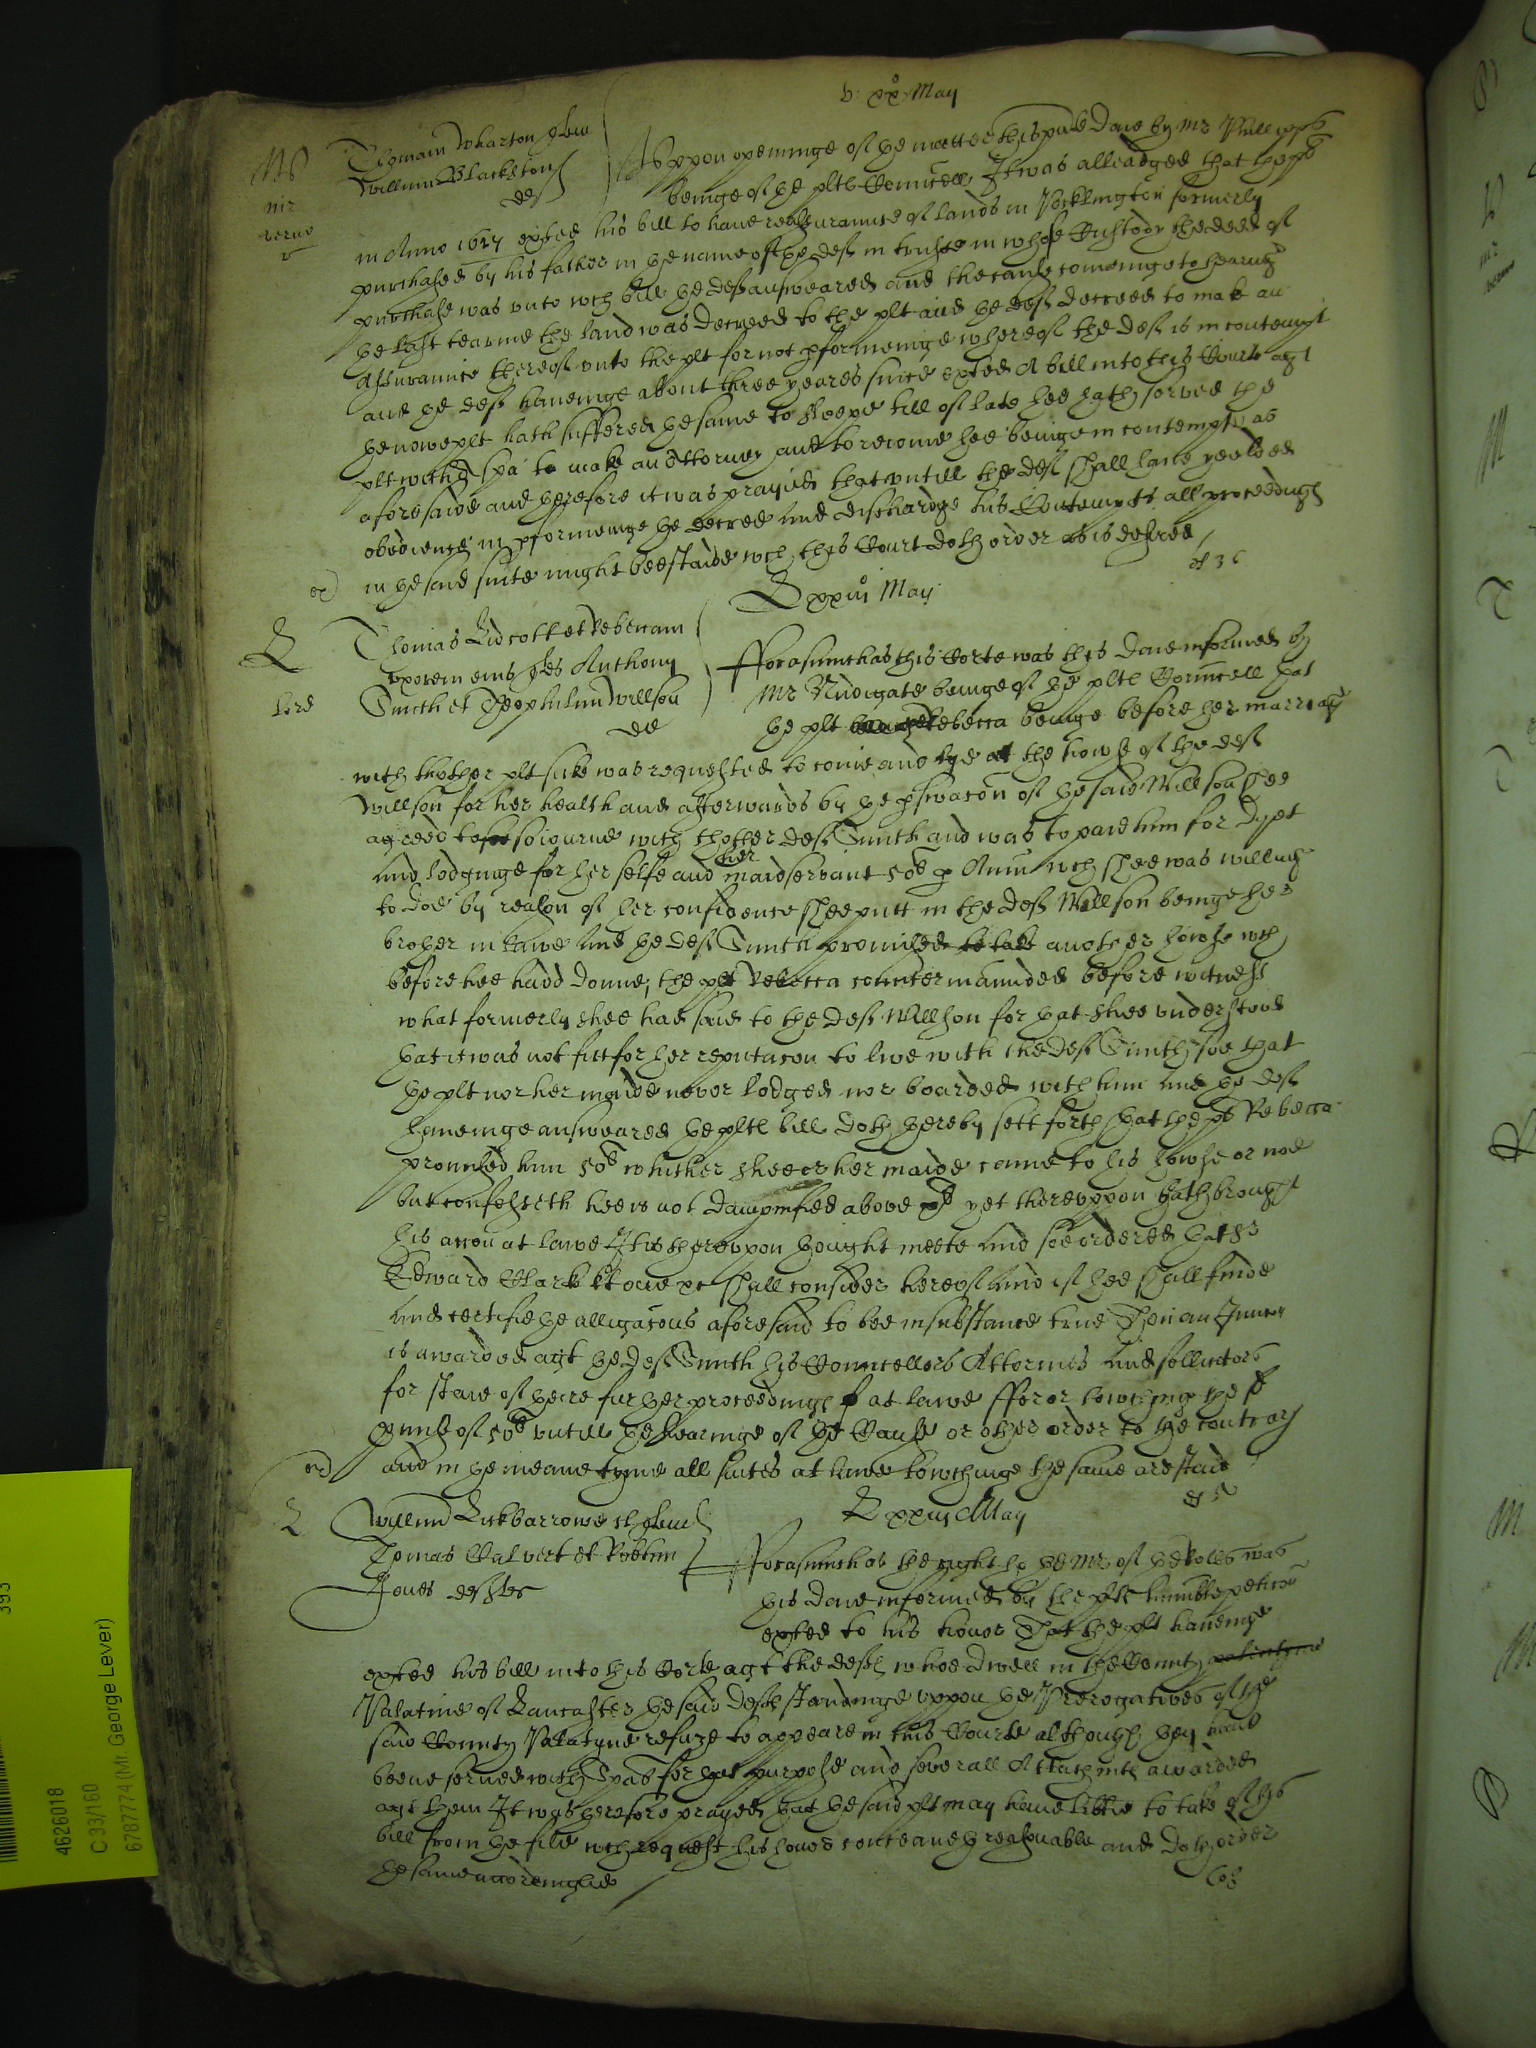 v. xx° May
Thomam Wharton
Willmum Blackston
def
Uppon openinge of the matter this pnte Daie by Mr Phillipps
beinge of the plts Councell It was alleadged that the plt
in Anno 1617 exhibited his bill to have reassurannce of lands in Pocklington formerly
purchased by his father in the name of the deft in truste in whose Custody the deed of
purchase was unto wch bill the deft answeared and the cause cominge to hearing
the last tearme the land was decreed to the plt and the deft decreed to make an
Assurannce thereof unto the plt for not pformeinge whereof the deft is in contempt
and the deft haveinge about three yeares since exhibited A bill into this Courte agt
the nowe plt hath suffered the same to sleepe till of late hee hath served the
plt with spa to make an Attorney and to reioine hee beinge in contempt as
aforesaid and therefore it was prayed that untill the deft shall have yeelded
obedience in pformeinge the decree and discharge his Contempts all proceedings
in the said suite might bee staide wch this Court doth order as is desired
xxiii May
Thomas et Rebeccam
uxorem eius Anthony
Smith et Theophilum Willson
def
Forasmuch as this Corte was this Daie informed by
Mr Nudigate beinge of the plts Councell that
the plt Rebecca beinge before her marriage
with thother plt sicke was requested to come and lye at the howse of the deft
Willson for her health and afterwards by the pswacon of the said Willson shee
agreed to soiourne with thother deft Smith and was to paie him for dyet
and lodginge for her selfe and her maidservant 50l p Annu wch shee was willing
to doe by reason of her confidence shee putt in the deft Willson beinge her
brother in lawe and the deft Smith promised to take another howse wch
before hee hadd donne, the plt Rebecca countermannded before witness
what formerly shee had said to the deft Willson for that shee understood
that it was not fitt for her reputacon to live with the deft Smith soe that
the plt nor her maide never lodged nor boarded with him and the deft
haveinge answeared the plts bill doth thereby sett forth that the plt Rebecca
promised him 50l whither shee or her maide came to his howse or noe
but confesseth hee is not dampnified above yet thereuppon hath brought
his accon at lawe It is thereuppon thought meete and soe ordered that Sr
Edward Clark shall consider hereof and if hee shall finde
and certifie the alligacons aforesaid to bee in substance true Then an Iniunc
is awarded agt the deft Smith his Councellors Attornies and sollicitors
for staie of theire further proceedings at lawe for or towching the sd
summe of 50l untill the hearinge of the Cause or other order to the contrary
and in the meane tyme all suites at lawe towchinge the same are staid
xxiii May
Willm Kirkbarrowe
Thomas Calvert et Robtum
Jones defts
Forasmuch as the right ho the Mr of the Rolls was
this daie informed by the plts humble peticon
exhibited to his honor That the plt haveinge
exhibited his bill into this Corte agt the defts whoe dwell in the County
Palatine of Lancaster the said defts standinge uppon the Prerogatives of the
said County Palatyne refuze to appeare in this Courte although they have
beene served with Spas for that purpose and severall Attachmts awarded
agt them It was therefore prayed that the said plt may have libtie to take of his
bill from the file wch request his honor conceaveth reasonable and doth order
the same accordinglie
393
4626018
C 33/160
6787774 (Mr. George Lever)